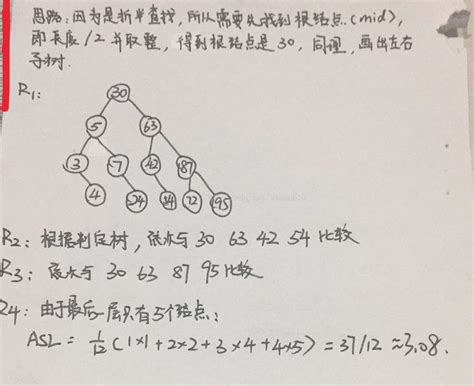 思路:因为是折半查找,所以需要先找到根结点(mid),
即长度/2并取整,得到根结点是30,同理,画出左右
子树.
R1:
30
5 63
3 7 42 87
4 24 54 72 95
R2:根据判定树,依次与 30 63 42 54 比较
R3:依次与 30 63 87 95比较
24:由于最后一层只有5个结点:
ASL = 1/12 (1×1+2×2+3×4+4×5) = 37/12 ≈3.08.